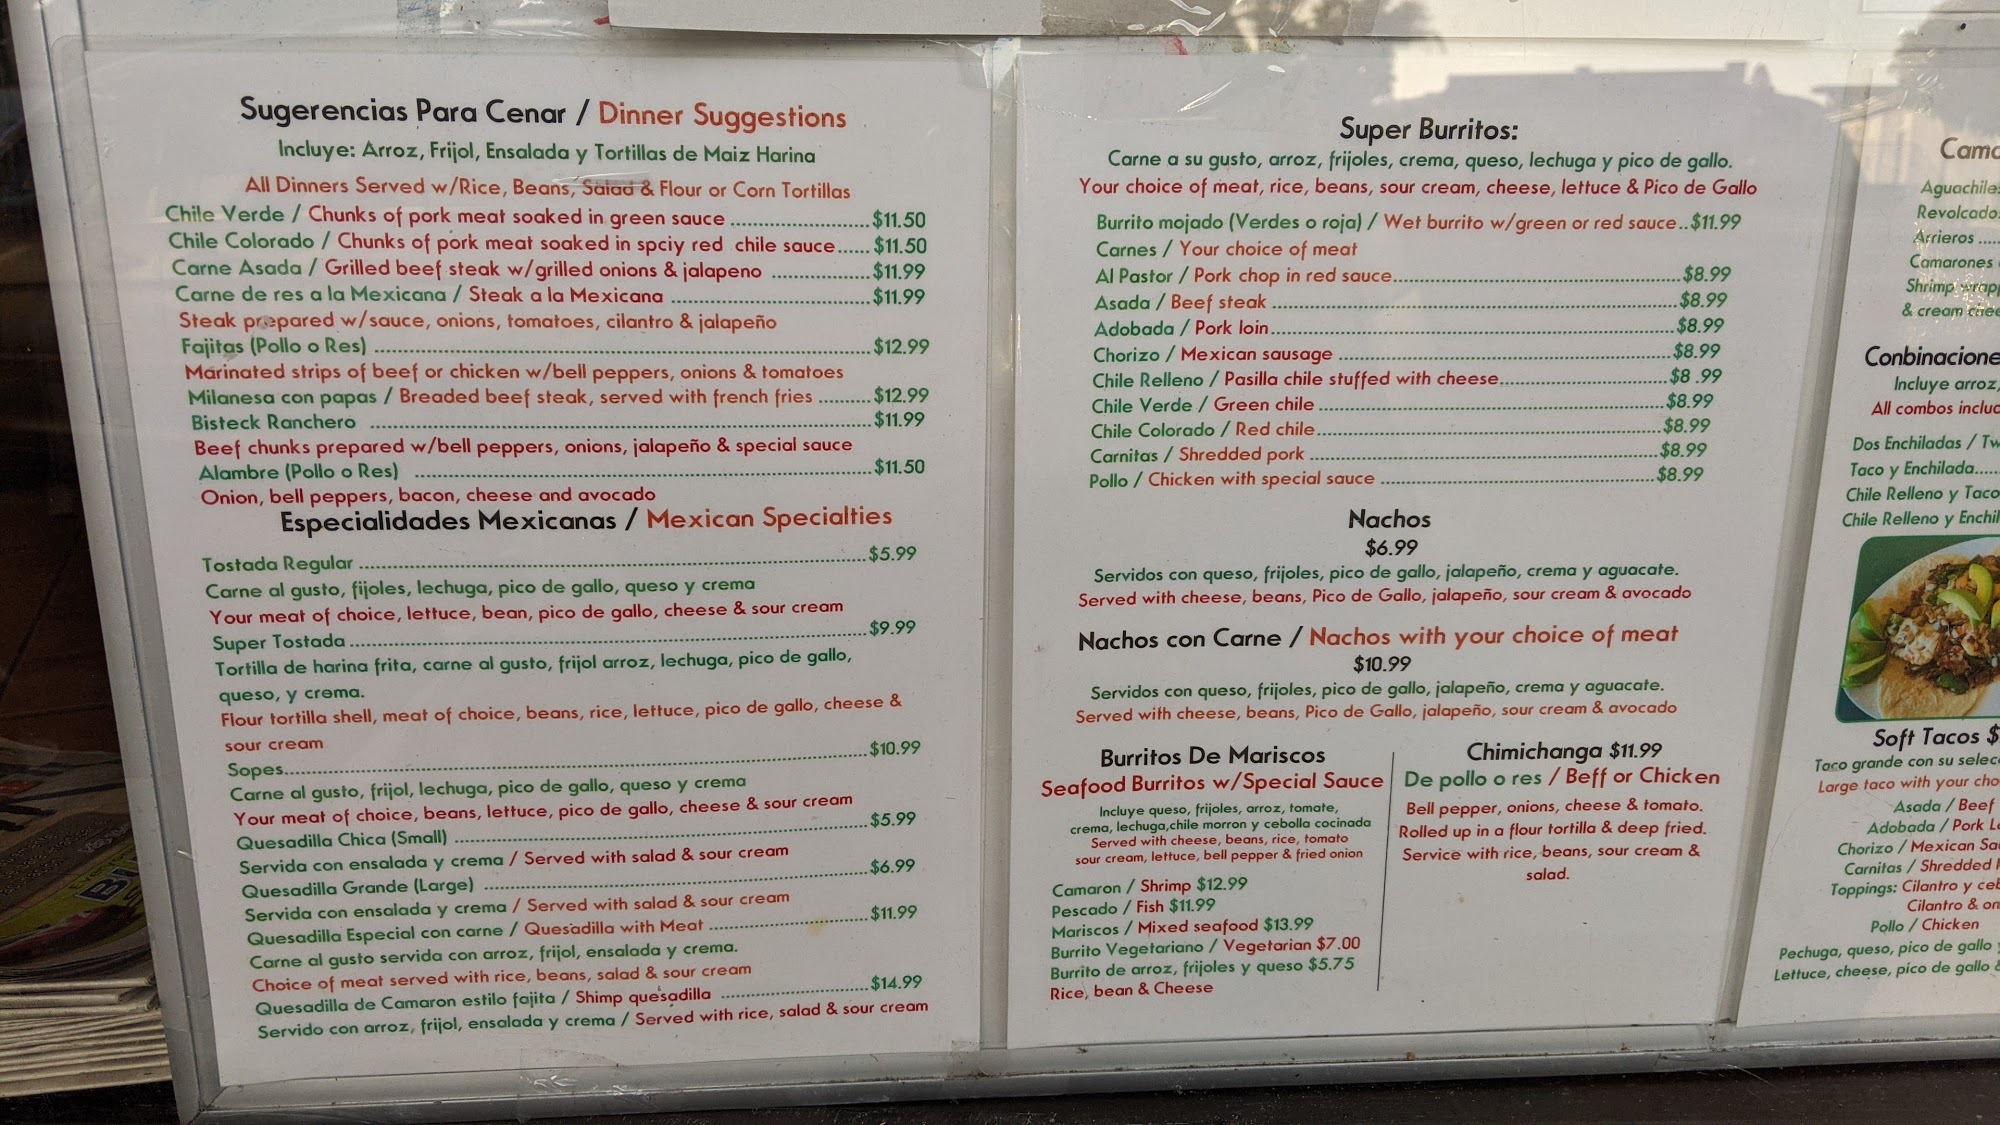 Sugerencias Para Cenar / Dinner Suggestions
Incluye: Arroz, Frijol, Ensalada y Tortillas de Maiz Harina
All Dinners Served w/Rice, Beans, Salad & Flour or Corn Tortillas
Chile Verde / Chunks of pork meat soaked in green sauce ........ $11.50
Chile Colorado / Chunks of pork meat soaked in spciy red chile sauce...... $11.50
Carne Asada / Grilled beef steak w/grilled onions & jalapeno ........ $11.99
Carne de res a la Mexicana / Steak a la Mexicana ........ $11.99
Steak prepared w/sauce, onions, tomatoes, cilantro & jalapeño
Fajitas (Pollo o Res) ........ $12.99
Marinated strips of beef or chicken w/bell peppers, onions & tomatoes
Milanesa con papas / Breaded beef steak, served with french fries ........ $12.99
Bisteck Ranchero ........ $11.99
Beef chunks prepared w/bell peppers, onions, jalapeño & special sauce
Alambre (Pollo o Res) ........ $11.50
Onion, bell peppers, bacon, cheese and avocado
Especialidades Mexicanas / Mexican Specialties
Tostada Regular ........ $5.99
Carne al gusto, fijoles, lechuga, pico de gallo, queso y crema
Your meat of choice, lettuce, bean, pico de gallo, cheese & sour cream
Super Tostada ........ $9.99
Tortilla de harina frita, carne al gusto, frijol arroz, lechuga, pico de gallo,
queso, y crema.
Flour tortilla shell, meat of choice, beans, rice, lettuce, pico de gallo, cheese &
sour cream
Sopes........ $10.99
Carne al gusto, frijol, lechuga, pico de gallo, queso y crema
Your meat of choice, beans, lettuce, pico de gallo, cheese & sour cream
Quesadilla Chica (Small) ........ $5.99
Servida con ensalada y crema / Served with salad & sour cream
Quesadilla Grande (Large) ........ $6.99
Servida con ensalada y crema / Served with salad & sour cream
Quesadilla Especial con carne / Quesadilla with Meat ........ $11.99
Carne al gusto servida con arroz, frijol, ensalada y crema.
Choice of meat served with rice, beans, salad & sour cream
Quesadilla de Camaron estilo fajita / Shimp quesadilla ........ $14.99
Servido con arroz, frijol, ensalada y crema / Served with rice, salad & sour cream
Super Burritos:
Carne a su gusto, arroz, frijoles, crema, queso, lechuga y pico de gallo.
Your choice of meat, rice, beans, sour cream, cheese, lettuce & Pico de Gallo
Burrito mojado (Verdes o roja) / Wet burrito w/green or red sauce..$11.99
Carnes / Your choice of meat
Al Pastor / Pork chop in red sauce........ $8.99
Asada / Beef steak ........ $8.99
Adobada / Pork loin........ $8.99
Chorizo / Mexican sausage ........ $8.99
Chile Relleno / Pasilla chile stuffed with cheese........ $8 .99
Chile Verde / Green chile ........ $8.99
Chile Colorado / Red chile........ $8.99
Carnitas / Shredded pork ........ $8.99
Pollo / Chicken with special sauce ........ $8.99
Nachos
$6.99
Servidos con queso, frijoles, pico de gallo, jalapeño, crema y aguacate.
Served with cheese, beans, Pico de Gallo, jalapeño, sour cream & avocado
Nachos con Carne / Nachos with your choice of meat
$10.99
Servidos con queso, frijoles, pico de gallo, jalapeño, crema y aguacate.
Served with cheese, beans, Pico de Gallo, jalapeño, sour cream & avocado
Burritos De Mariscos
Seafood Burritos w/Special Sauce
Incluye queso, frijoles, arroz, tomate,
crema, lechuga,chile morron y cebolla cocinada
Served with cheese, beans, rice, tomato
sour cream, lettuce, bell pepper & fried onion
Camaron / Shrimp $12.99
Pescado / Fish $11.99
Mariscos / Mixed seafood $13.99
Burrito Vegetariano / Vegetarian $7.00
Burrito de arroz, frijoles y queso $5.75
Rice, bean & Cheese
Chimichanga $11.99
De pollo o res / Beff or Chicken
Bell pepper, onions, cheese & tomato.
Rolled up in a flour tortilla & deep fried.
Service with rice, beans, sour cream &
salad.
Revolcado
Arrieros .....
Camarones
Shrimp
& cream
Incluye arroz,
All combos
Dos Enchiladas /
Taco y Enchilada.....
Chile Relleno y Taco
Chile Relleno y
Soft Tacos $
Taco grande con su
Large taco with your
Asada / Beef
Adobada / Pork
Chorizo / Mexican
Carnitas / Shredded
Toppings: Cilantro y
Cilantro &
Pollo / Chicken
Pechuga, queso, pico de gallo
Lettuce, cheese, pico de gallo